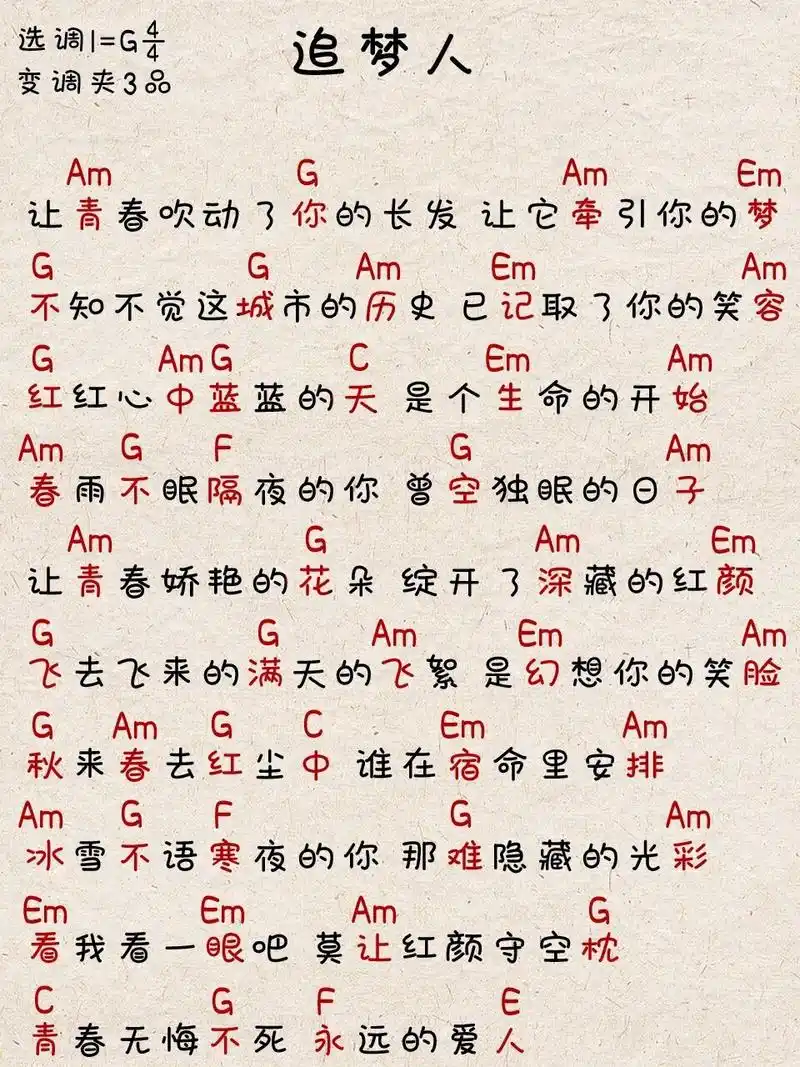 选调1=G 4/4
追梦人
变调夹3品
Am G Am Em
让青春吹动了你的长发 让它牵引你的梦
G G Am Em Am
不知不觉这城市的历史 已记取了你的笑容
G Am G C Em Am
红红心中蓝蓝的天 是个生命的开始
Am G F G Am
春雨不眠隔夜的你 曾空独眠的日子
Am G Am Em
让青春娇艳的花朵 绽开了深藏的红颜
G G Am Em Am
飞去飞来的满天的飞絮 是幻想你的笑脸
G Am G C Em Am
秋来春去红尘中 谁在宿命里安排
Am G F G Am
冰雪不语寒夜的你 那难隐藏的光彩
Em Em Am G
看我看一眼吧 莫让红颜守空枕
C G F E
青春无悔不死 永远的爱人